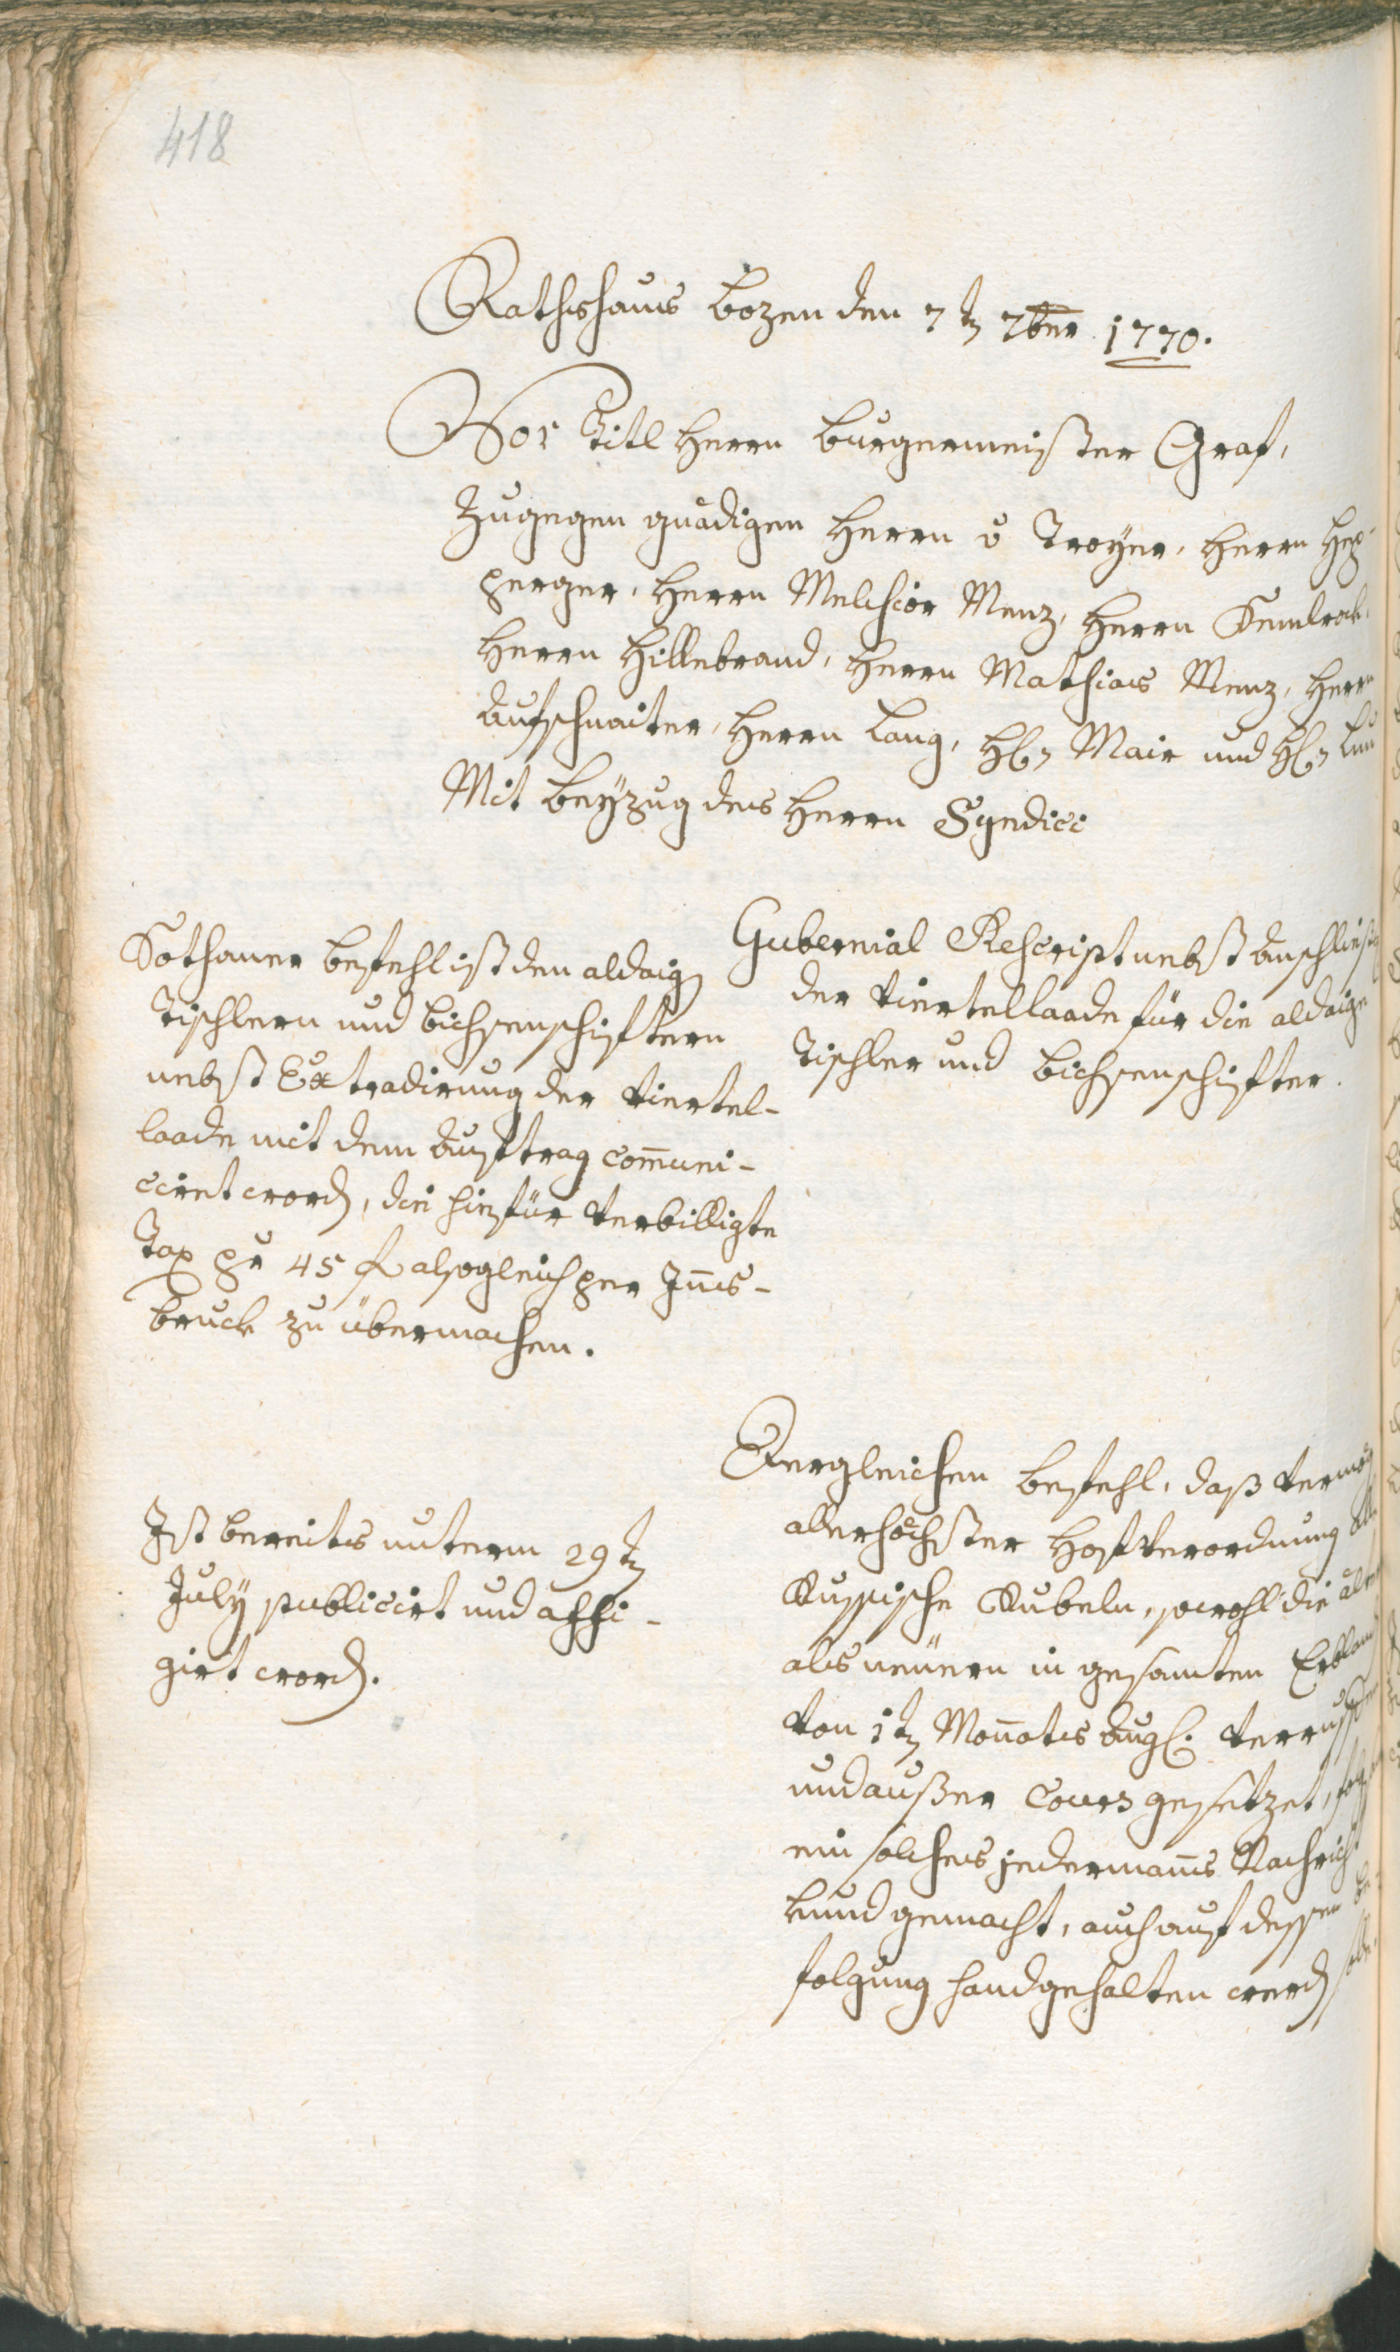 418
Rathshaus Bozen den 7 t 7ber 1770.
Vor Titl Herrn Burgermeister Graf,
Zugegen gnädigen Herrn v Troyer, Herrn Hep-
perger, Herrn Melchior Menz, Herrn Kemlrock
Herrn Hillebrand, Herrn Mathias Menz, Herrn
Aufschnaiter, Herrn Lang, H Mair und H
Mit Beyzug des Herrn Syndici
Gubernial Rescript nebst Anschließ
der Viertellaade für die aldaige
Tischler und Bichsenschifter.
Sothaner Befehl ist den aldaig
Tischlern und Bichsenschiftern
nebst Extradirung der Viertel-
laade mit dem Auftrag com̄uni-
cirt word, die hiefür verbilligte
Tax pr 45 f alsogleich per Jn̄s-
bruck zu übermachen.
Dergleichen Befehl, daß vermög
allerhöchster Hofverordnung alle
Russische Rubeln, sowohl die alte
als neüern in gesamten Erbland
von 1 t Monats Aug. verruffen
und außer Cours gesetzet,
ein solches jedermans Nachricht
kund gemacht, auch auf dessen be
folgung handgehalten werd solle.
Jst bereits unterm 29 t
July publicirt und affi-
girt word.